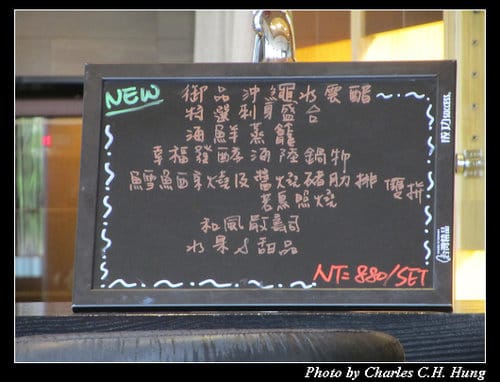 NEW
御品沖繩水雲醋
特選刺身盛合
海鮮蒸籠
幸福發酵海陸鍋物
鱈魚西京燒及醬燒豬肋排 雙拼
若鳥照燒
和風散壽司
水果&甜品
NT=880/SET
成功 success
台灣精品
Photo by Charles C.H. Hung